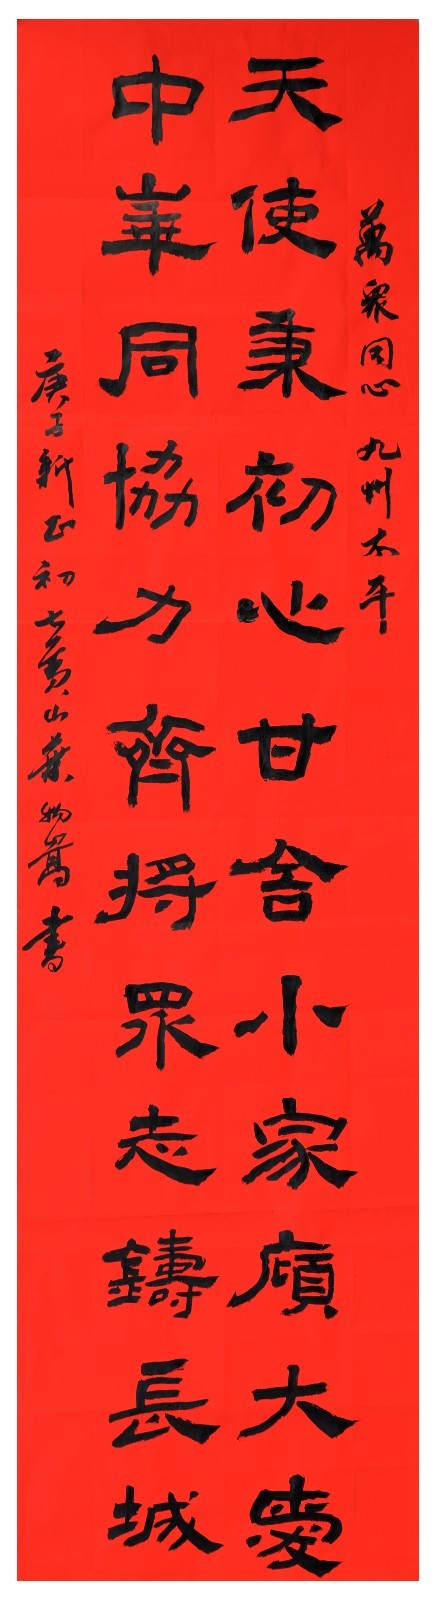 萬眾同心 九州太平
天使秉初心甘舍小家顧大愛
中華同協力齊將眾志鑄長城
庚子新正初七黃山葉嵩書